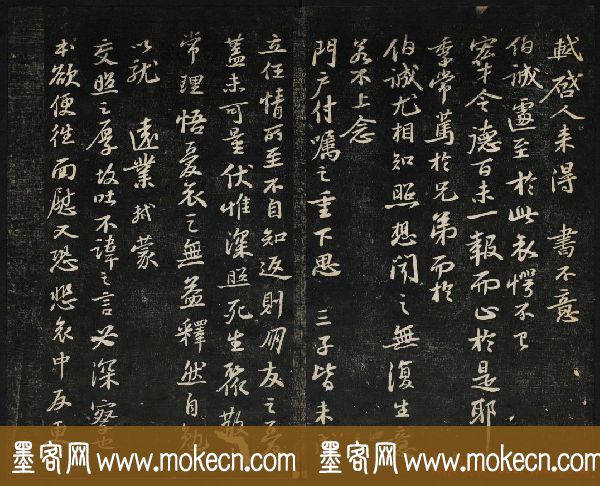 軾啓人来得 書不意
伯誠遽至於此哀愕不已
宏才令德百未一報而止於是耶
季常篤於兄弟而於
伯誠尤相知照想聞之無復生意
若不上念
門戶付嘱之重下思 三子皆未
立任情所至不自知返則朋友之憂
蓋未可量伏惟深照死生聚散
常理悟憂哀之無益釋然自勉
以就 遠業軾蒙
交照之厚故吐不諱之言必深察也
本欲便往面慰又恐悲哀中反更
墨客网 www.mokecn.com 墨客网 www.mokecn.com